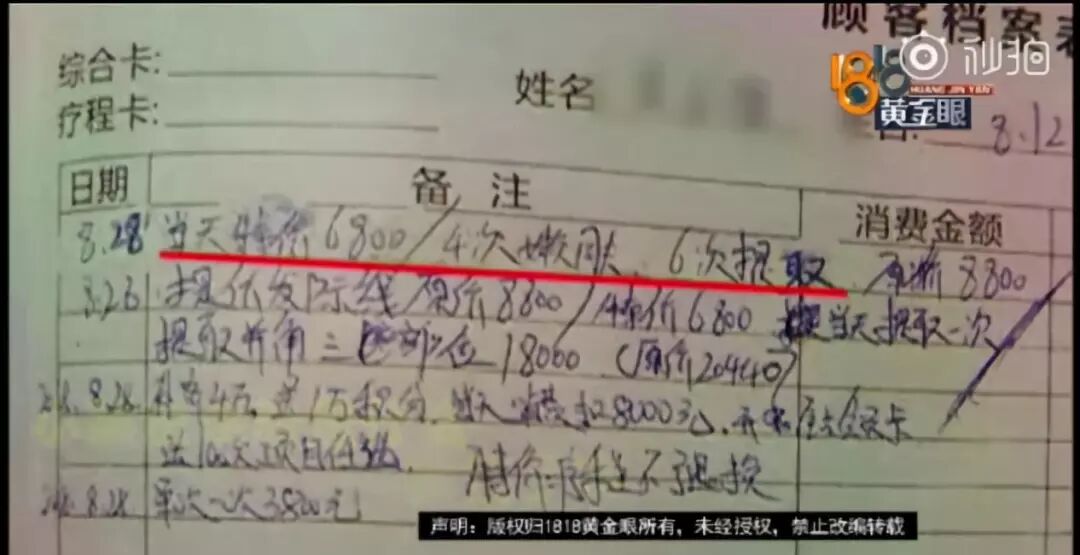 顾客档案表
秒拍
1818
黄金眼
综合卡:
疗程卡:
姓名
8.12
日期 备注 消费金额
8.28 当天特价6800/4次嫩肤、6次提取 原价8800
8.26 提低发际线原价8800/特价6800 当天提取一次
提取 三 部位18000（原价20440)
8.28. 4万,送1万积分,当天消费扣8000元,
送10次项目任
8.28. 单次一次3800元 不退换
声明：版权归1818黄金眼所有，未经授权，禁止改编转载